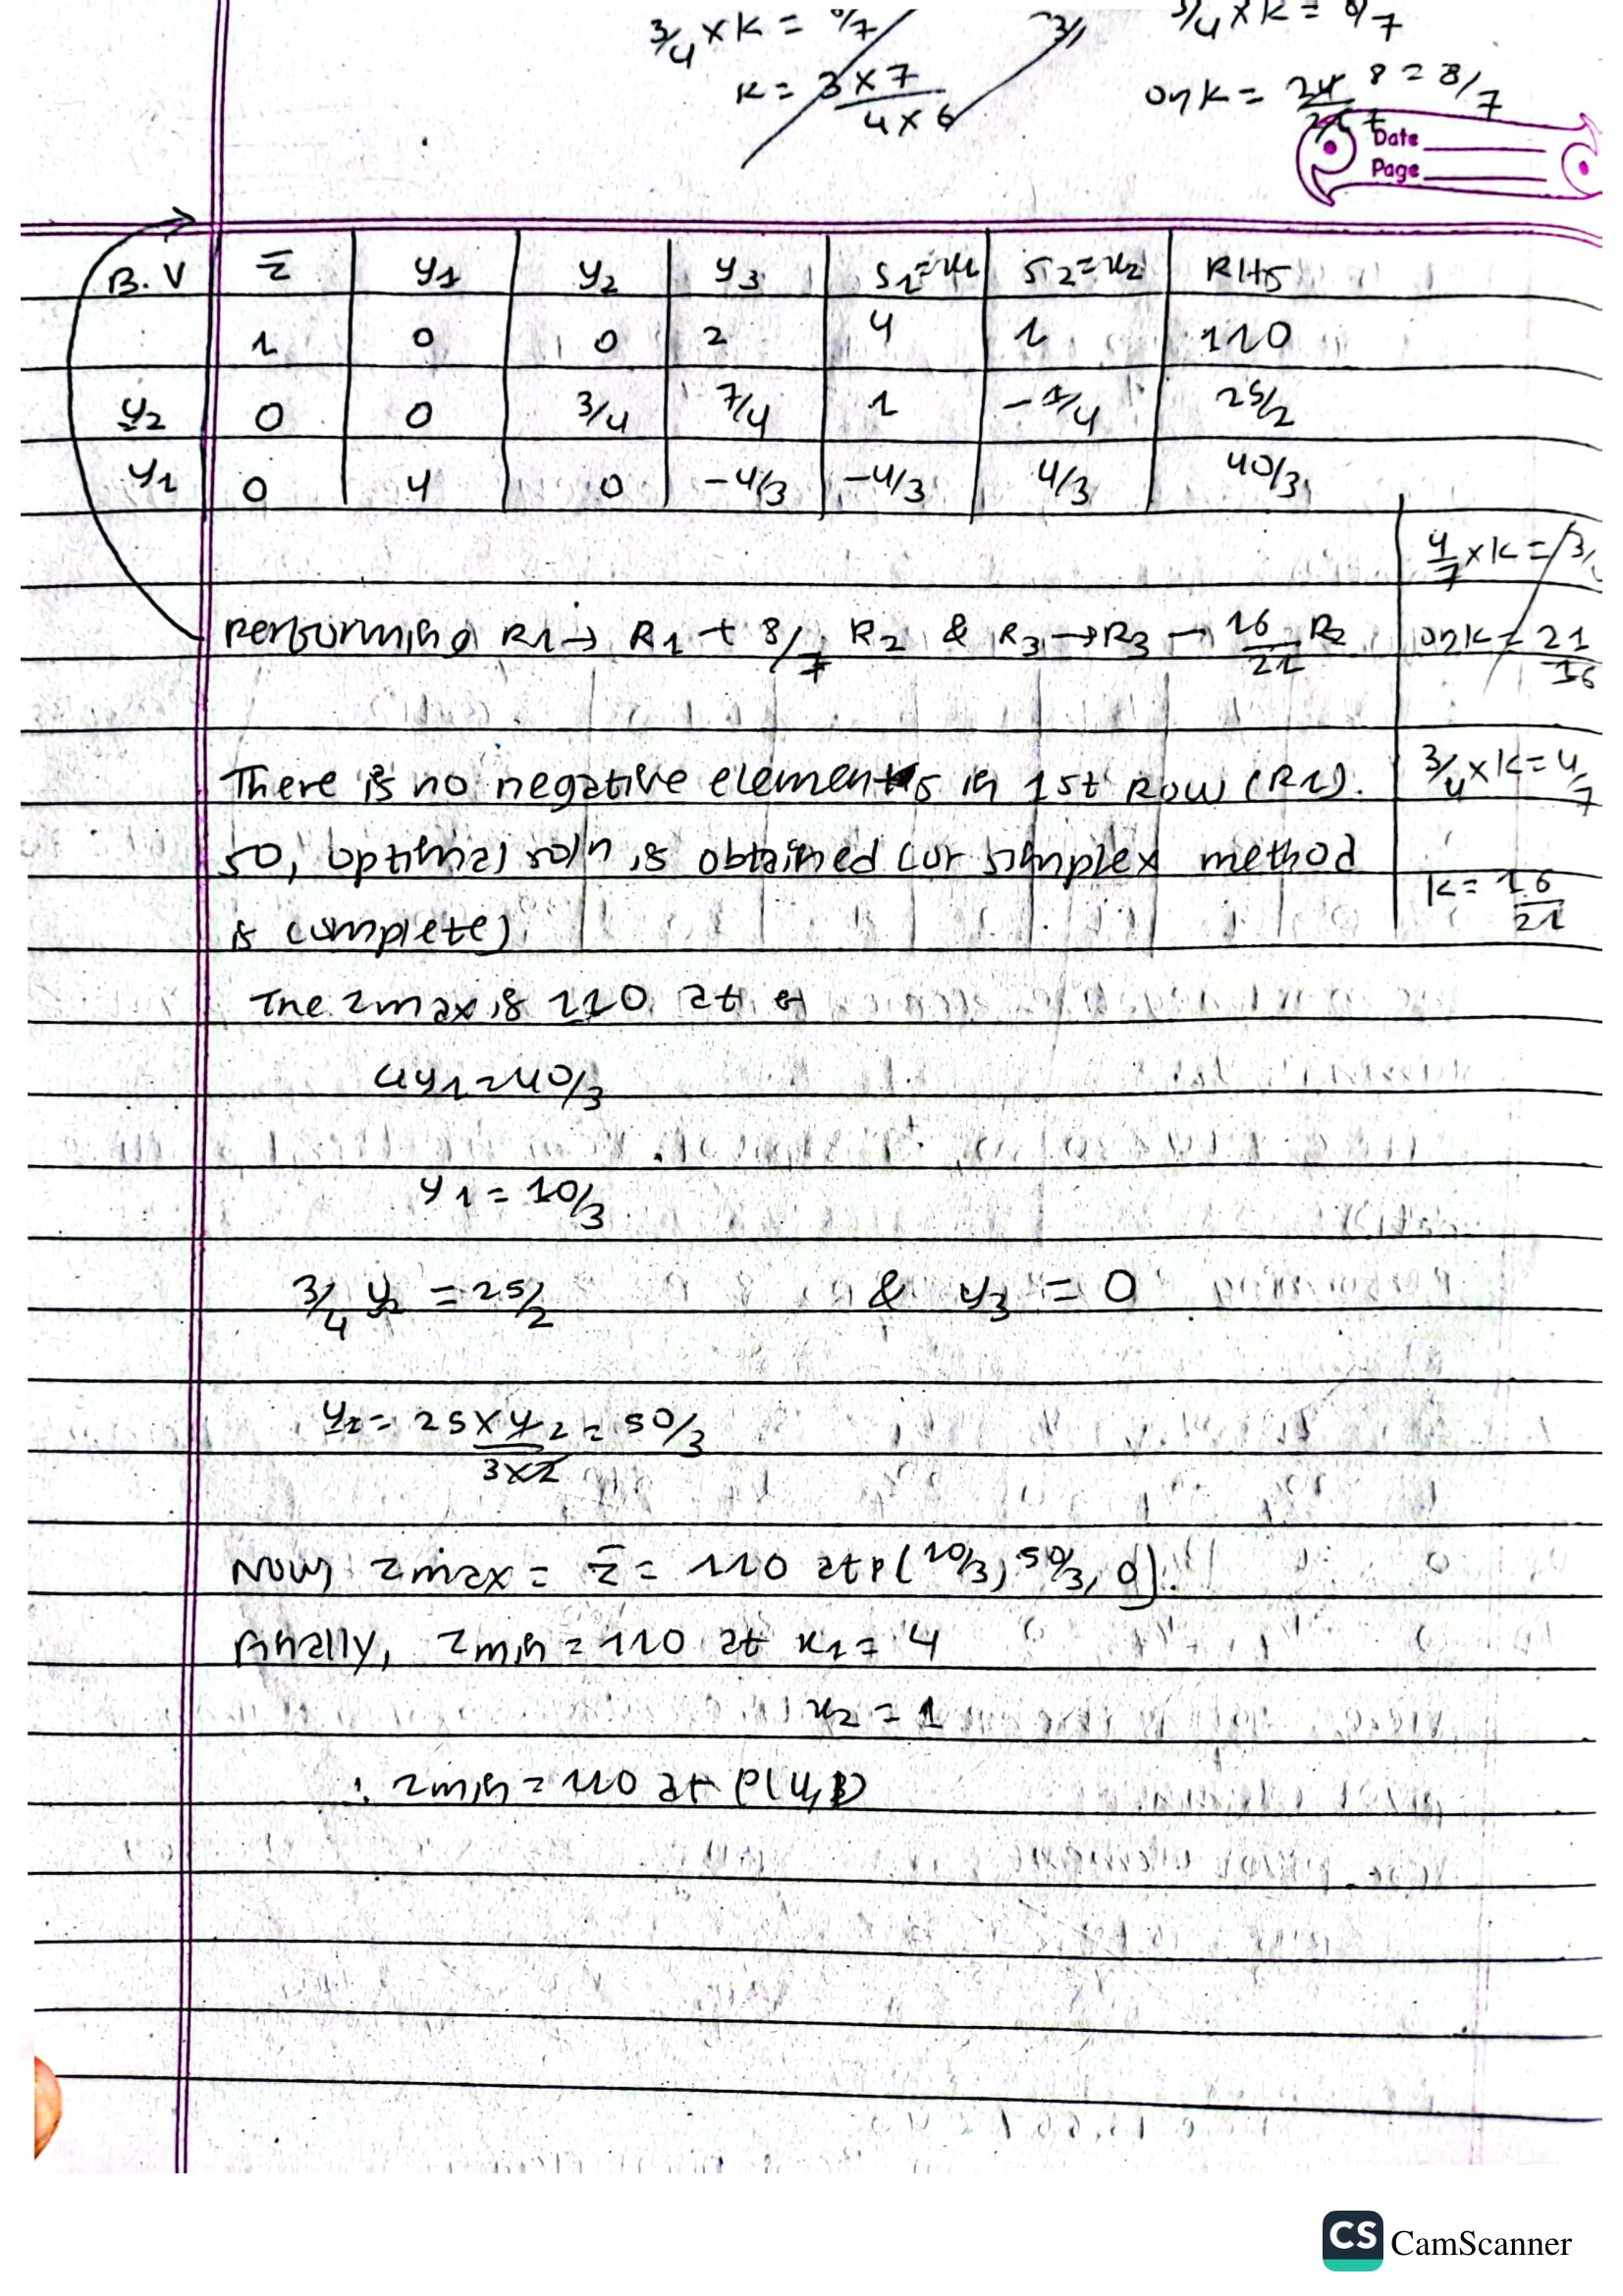 3/4 × K = 6/7
K = 3×7 / 4×6
3/4 × K = 6/7
on K = 24 8 = 8/7
Date
Page
B.V z̄ y1 y2 y3 S1=x1 S2=x2 RHS
1 0 0 2 4 1 110
y2 0 0 3/4 7/4 1 -1/4 25/2
y1 0 4 0 -4/3 -4/3 4/3 40/3
4/7 × K = 3/
Performing R1 → R1 + 8/7 R2 & R3 → R3 - 16/21 R2
on K = 21/16
There is no negative elements in 1st Row (R1).
3/4 × K = 4/7
so, optimal soln is obtained (or simplex method
K = 16/21
is complete)
The zmax is 110 at
4y1 = 40/3
y1 = 10/3
3/4 y2 = 25/2 & y3 = 0
y2 = 25×4 2 / 3×2 = 50/3
Now, zmax = z̄ = 110 at P(10/3, 50/3, 0).
Finally, zmin = 110 at x1 = 4
x2 = 1
∴ zmin = 110 at P(4,1)
CS CamScanner